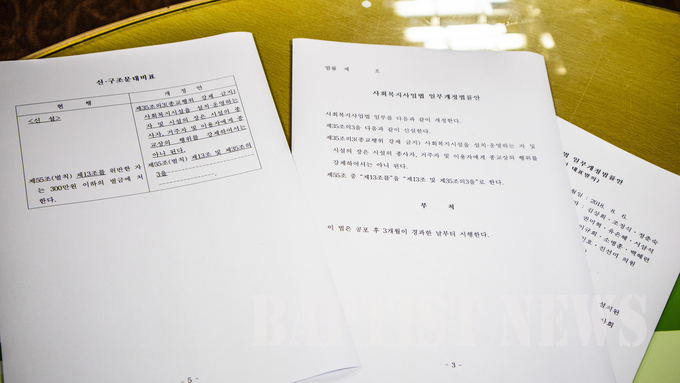 신·구조문대비표
현 행
개 정 안
<신 설>
제35조의3(종교행위 강제 금지)
사회복지시설을 설치·운영하는
자 및 시설의 장은 시설의 종
사자, 거주자 및 이용자에게 종
교상의 행위를 강제하여서는
아니 된다.
제55조(벌칙) 제13조를 위반한 자
는 300만원 이하의 벌금에 처
한다.
제55조(벌칙) 제13조 및 제35조의
3을
- 5 -
법률 제 호
사회복지사업법 일부개정법률안
사회복지사업법 일부를 다음과 같이 개정한다.
제35조의3을 다음과 같이 신설한다.
제35조의3(종교행위 강제 금지) 사회복지시설을 설치·운영하는 자 및
시설의 장은 시설의 종사자, 거주자 및 이용자에게 종교상의 행위를
강제하여서는 아니 된다.
제55조 중 “제13조를”을 “제13조 및 제35조의3을”로 한다.
부 칙
이 법은 공포 후 3개월이 경과한 날부터 시행한다.
- 3 -
법 일부개정법률안
대표발의)
2018. 8. 6.
김상희·조정식·정춘숙
권미혁·유은혜·서삼석
이규희·소병훈·백혜련
진선미 의원
BAPTIST NEWS